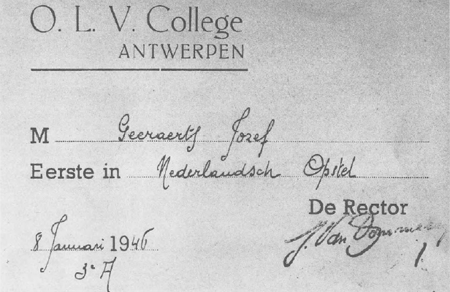 O. L. V. College
ANTWERPEN
M Geeraerts Jozef
Eerste in Nederlandsch Opstel
De Rector
8 Januari 1946
3e A
J. Van Dommes